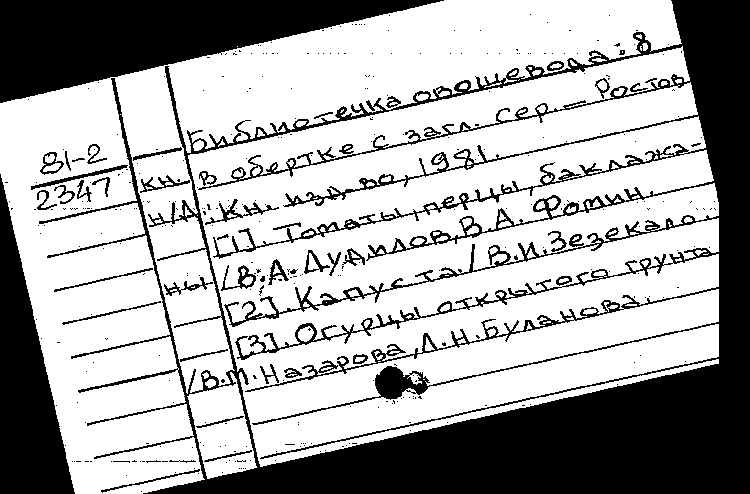 Библиотечка овощевода: 8
81-2
2347
кн. в обертке с загл. сер. — Ростов
н/Д: Кн. изд-во, 1981.
[1]. Томаты, перцы, баклажа-
ны /В.А. Дудилов, В.А. Фомин.
[2]. Капуста. / В.И. Зезекало.
[3]. Огурцы открытого грунта
/В.М. Назарова, Л.Н. Буланова.